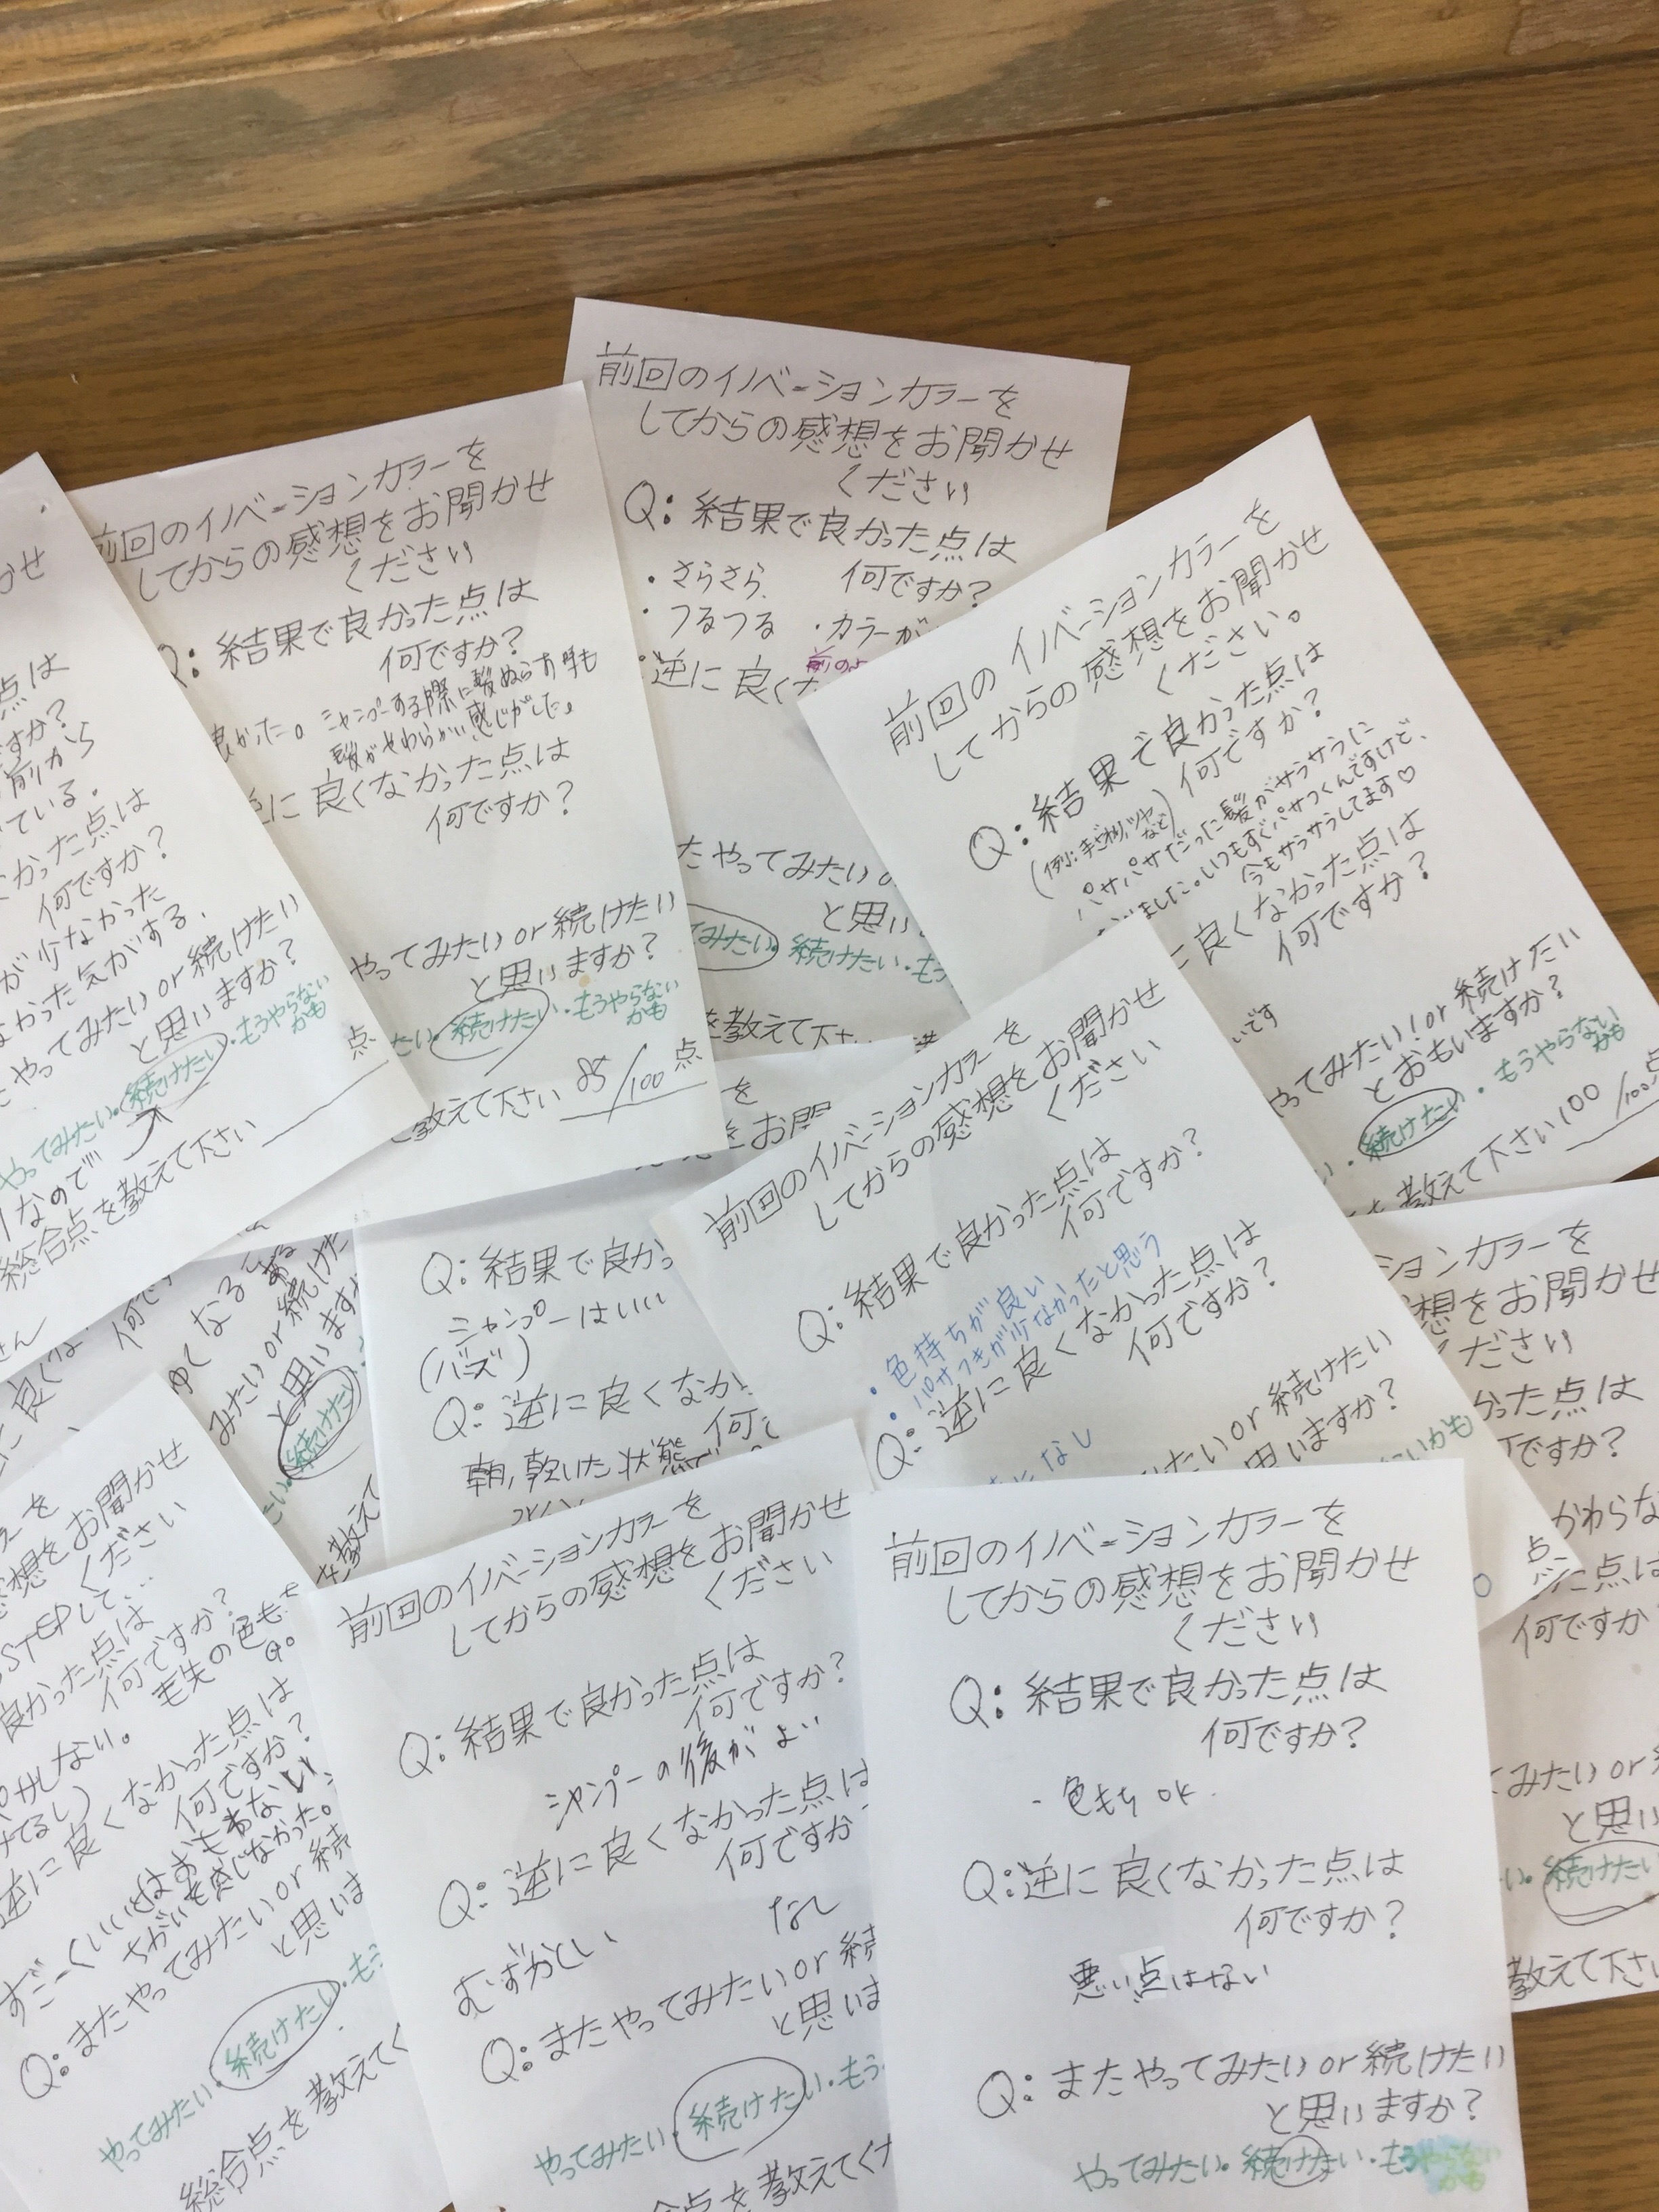 前回のイノベーションカラーを
してからの感想をお聞かせ
ください
Q: 結果で良かった点は
何ですか?
・さらさら
・つるつる
・カラーが
前の
逆に良く
たやってみたい
と思い
てみたい・続けたい・も
を教えて下さ
前回のイノベーションカラーを
してからの感想をお聞かせ
ください
Q: 結果で良かった点は
何ですか?
良かった。シャンプーする際に
髪がやわらかい感じがした。
に良くなかった点は
何ですか?
やってみたいor続けたい
と思いますか?
たい・続けたい・もうやらない
かも
教えて下さい 85/100点
かせ
点は
すか?
前から
ている。
かった点は
何ですか?
が少なかった
なかった気がする。
やってみたいor続けたい
と思いますか?
やってみたい・続けたい・もうやらない
かも
なので
総合点を教えて下さい 点
前回のイノベーションカラーを
してからの感想をお聞かせ
ください。
Q: 結果で良かった点は
何ですか?
(例:手ざわり、ツヤ
など)
パサパサだった髪がサラサラに
いました。いつもすぐパサつくんですけど、
今もサラサラしてます♡
に良くなかった点は
何ですか?
いです
ってみたい!or続けたい
とおもいますか?
い・続けたい・もうやらない
かも
を教えて下さい 100/100点
前回のイノベーションカラーを
してからの感想をお聞かせ
ください
Q: 結果で良かった点は
何ですか?
・色持ちが良い
・パサつきが少なかったと思う
Q: 逆に良くなかった点は
何ですか?
なし
たいor続けたい
思いますか?
ないかも
点
を
をお聞
Q: 結果で良かっ
シャンプーはいい
Q: 逆に良くなか
何で
朝、乾いた状態で
なる
みたいor続けた
と思います
続けたい
教えて
ションカラーを
想をお聞かせ
ください
かった点は
ですか?
かわらな
た点は
何ですか
てみたいor
と思い
続けたい
教えて下さい
ラーを
感想をお聞かせ
ください
STEPして…
良かった点は
何ですか?
毛先の色も
しない。
てるし)
逆に良くなかった点は
何ですか?
すごーくいいとはおもわない
ちがいも感じなかった。
Q: またやってみたいor続
と思いま
やってみたい・続けたい・も
総合点を教えてく
前回のイノベーションカラーを
してからの感想をお聞かせ
ください
Q: 結果で良かった点は
何ですか?
シャンプーの後がよい
Q: 逆に良くなかった点は
何ですか
なし
むずかしい
Q: またやってみたいor続
と思いま
やってみたい・続けたい・もう
合点を教えてく
前回のイノベーションカラーを
してからの感想をお聞かせ
ください
Q: 結果で良かった点は
何ですか?
・色もち OK
Q: 逆に良くなかった点は
何ですか?
悪い点はない
Q: またやってみたいor続けたい
と思いますか?
やってみたい・続けたい・もうやらない
かも